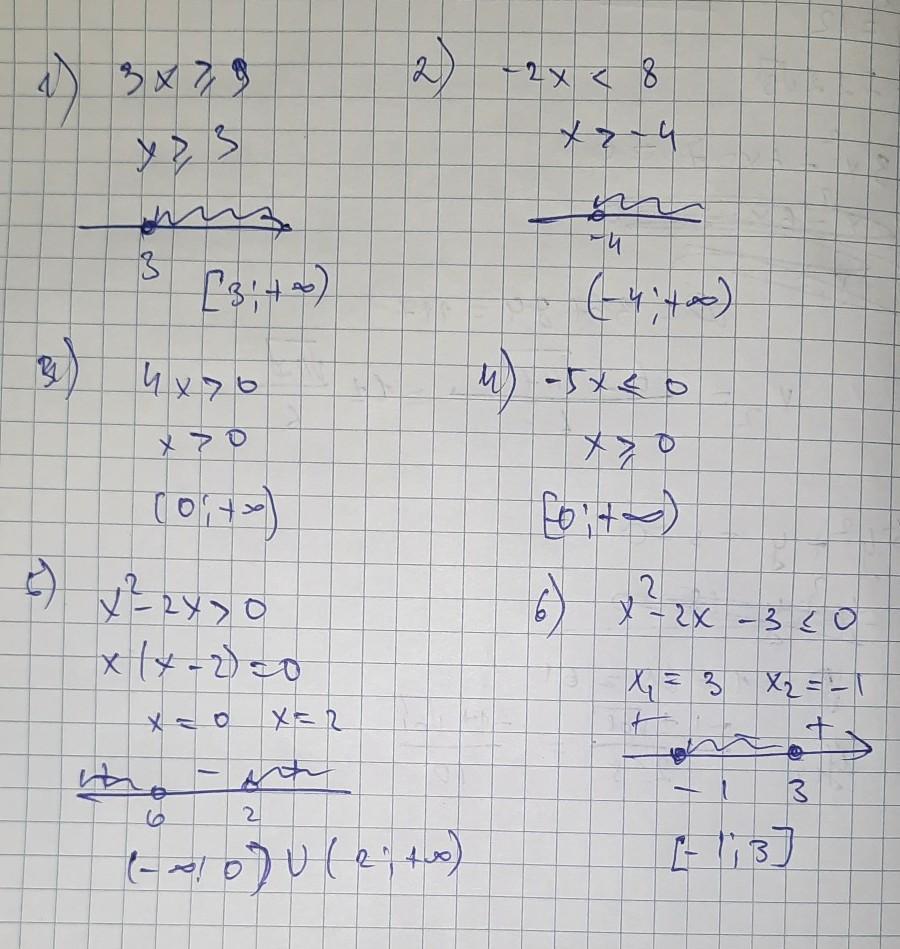 1) 3x ⩾ 9
x ⩾ 3
3
[3; +∞)
2) -2x < 8
x > -4
-4
(-4; +∞)
3) 4x > 0
x > 0
(0; +∞)
4) -5x ⩽ 0
x ⩾ 0
[0; +∞)
5) x² - 2x > 0
x(x - 2) = 0
x = 0 x = 2
+ - +
0 2
(-∞; 0) ∪ (2; +∞)
6) x² - 2x - 3 ≤ 0
x₁ = 3 x₂ = -1
+ - +
-1 3
[-1; 3]